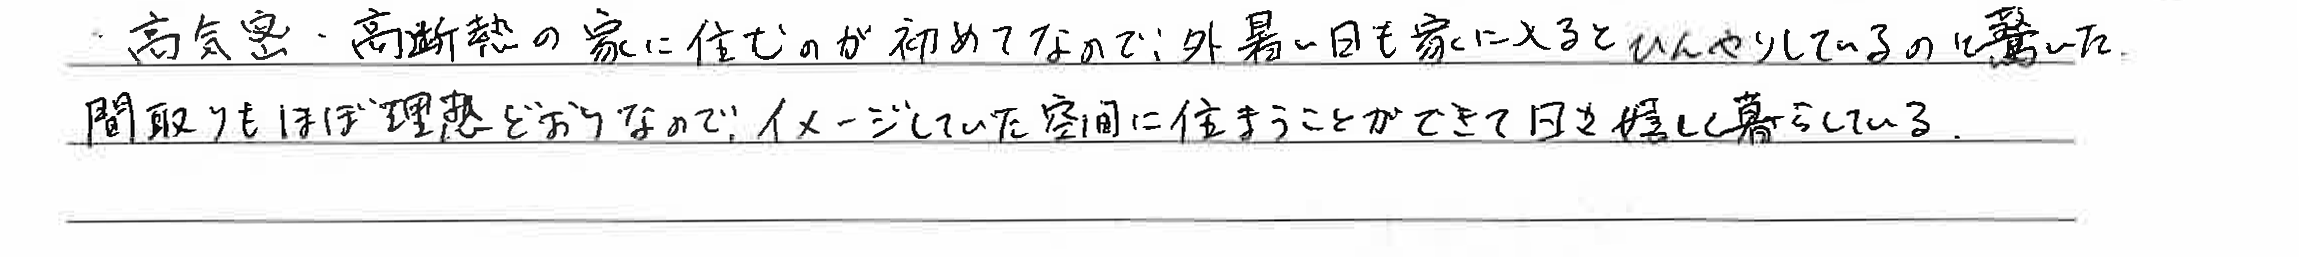 ・高気密・高断熱の家に住むのが初めてなので、外暑い日も家に入るとひんやりしているのに驚いた.
間取りもほぼ理想どおりなので、イメージしていた空間に住まうことができて日々嬉しく暮らしている.